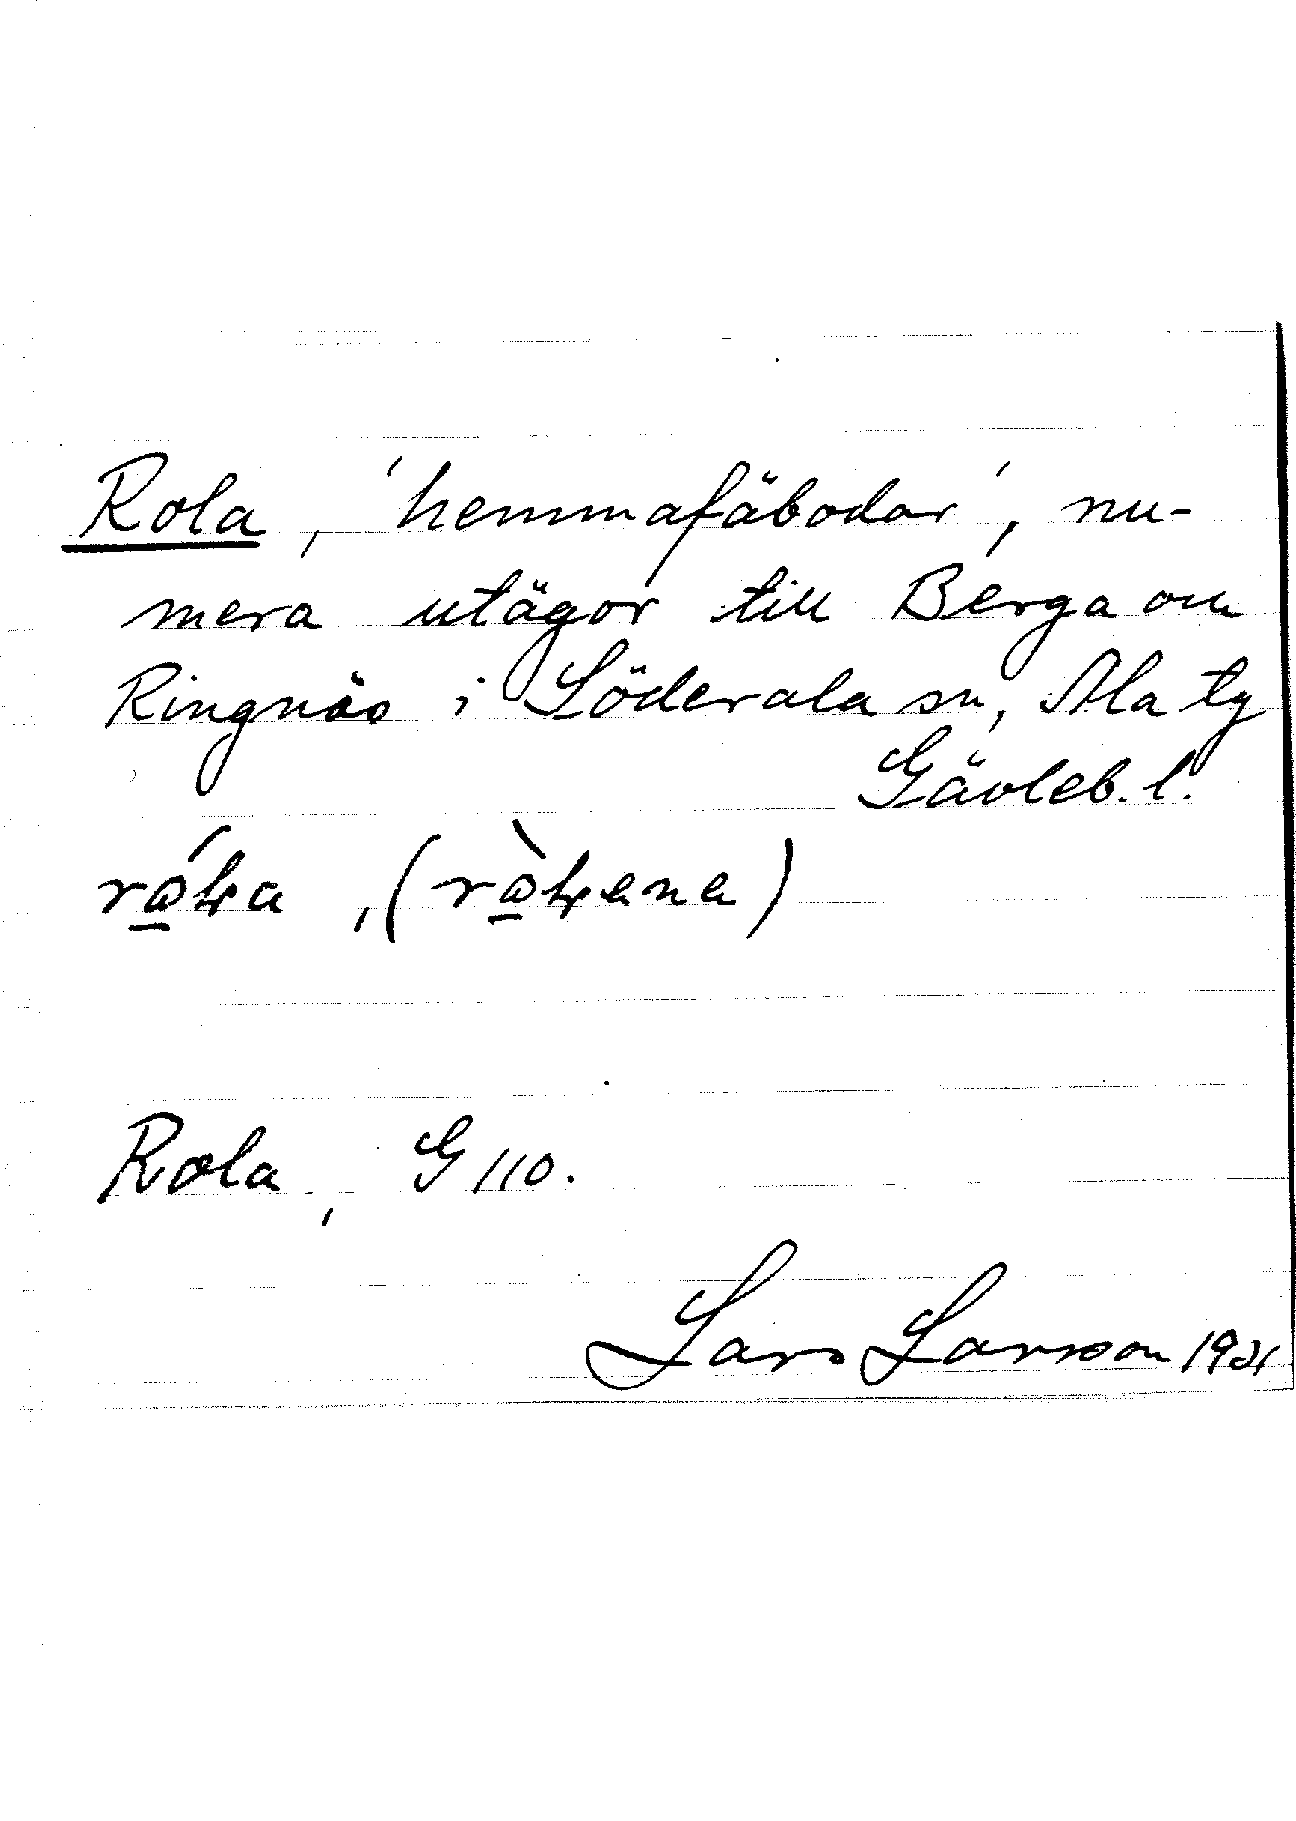 Rola, 'hemmafäbodar', nu-
mera utägor till Berga och
Ringnäs i Söderala sn, Ala tg
Gävleb. l.
Rola, G 110.
Lars Larsson 1931